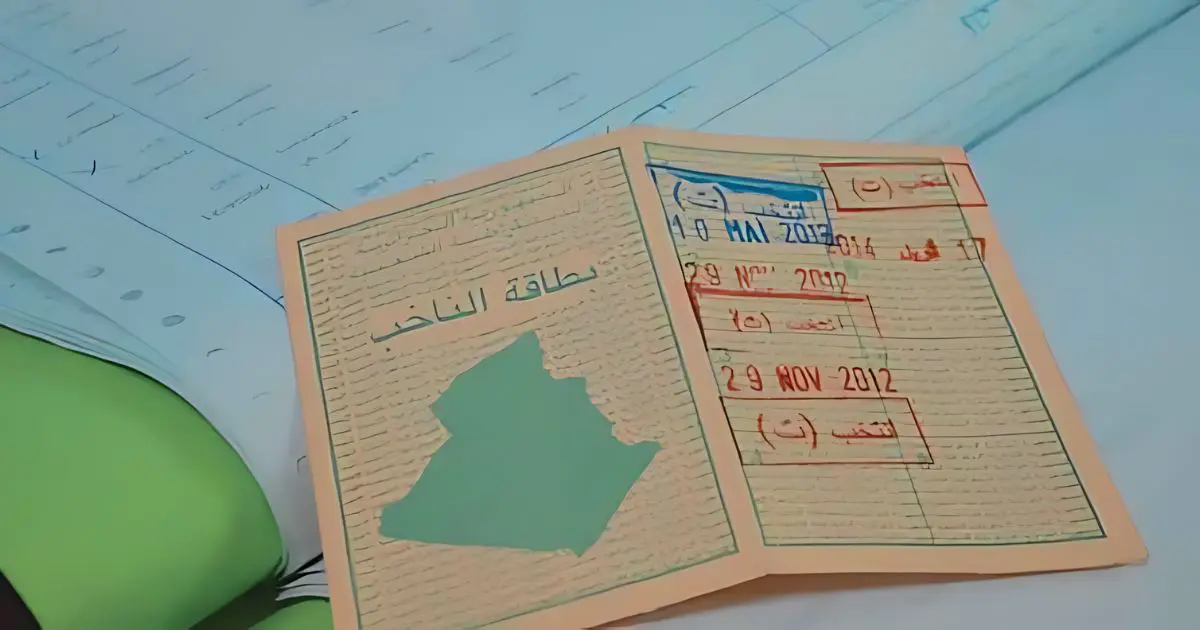 بطاقة الناخب
انتخب (ت)
10 MAI
انتخب (ت)
17 أفريل 2014
29 NOV 2012
انتخب (ت)
29 NOV 2012
انتخب (ت)